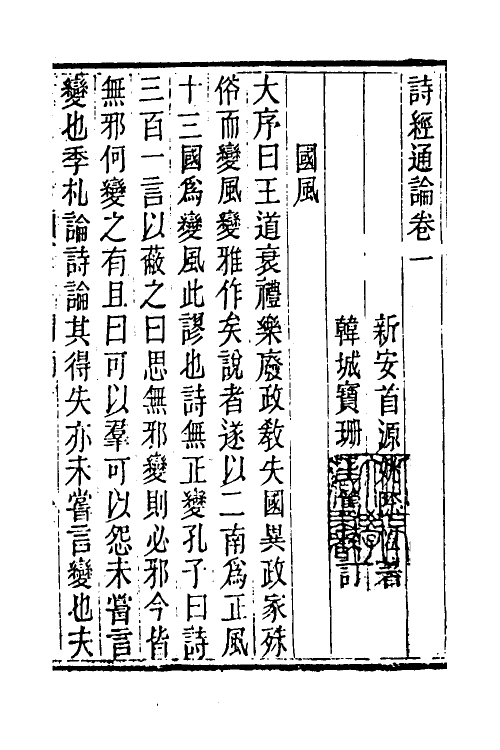 詩經通論卷一
新安首源姚際恒著
韓城寶珊 訂
國風
大序曰王道衰禮樂廢政敎失國異政家殊
俗而變風變雅作矣說者遂以二南爲正風
十三國爲變風此謬也詩無正變孔子曰詩
三百一言以蔽之曰思無邪變則必邪今皆
無邪何變之有且曰可以羣可以怨未嘗言
變也季札論詩論其得失亦未嘗言變也夫